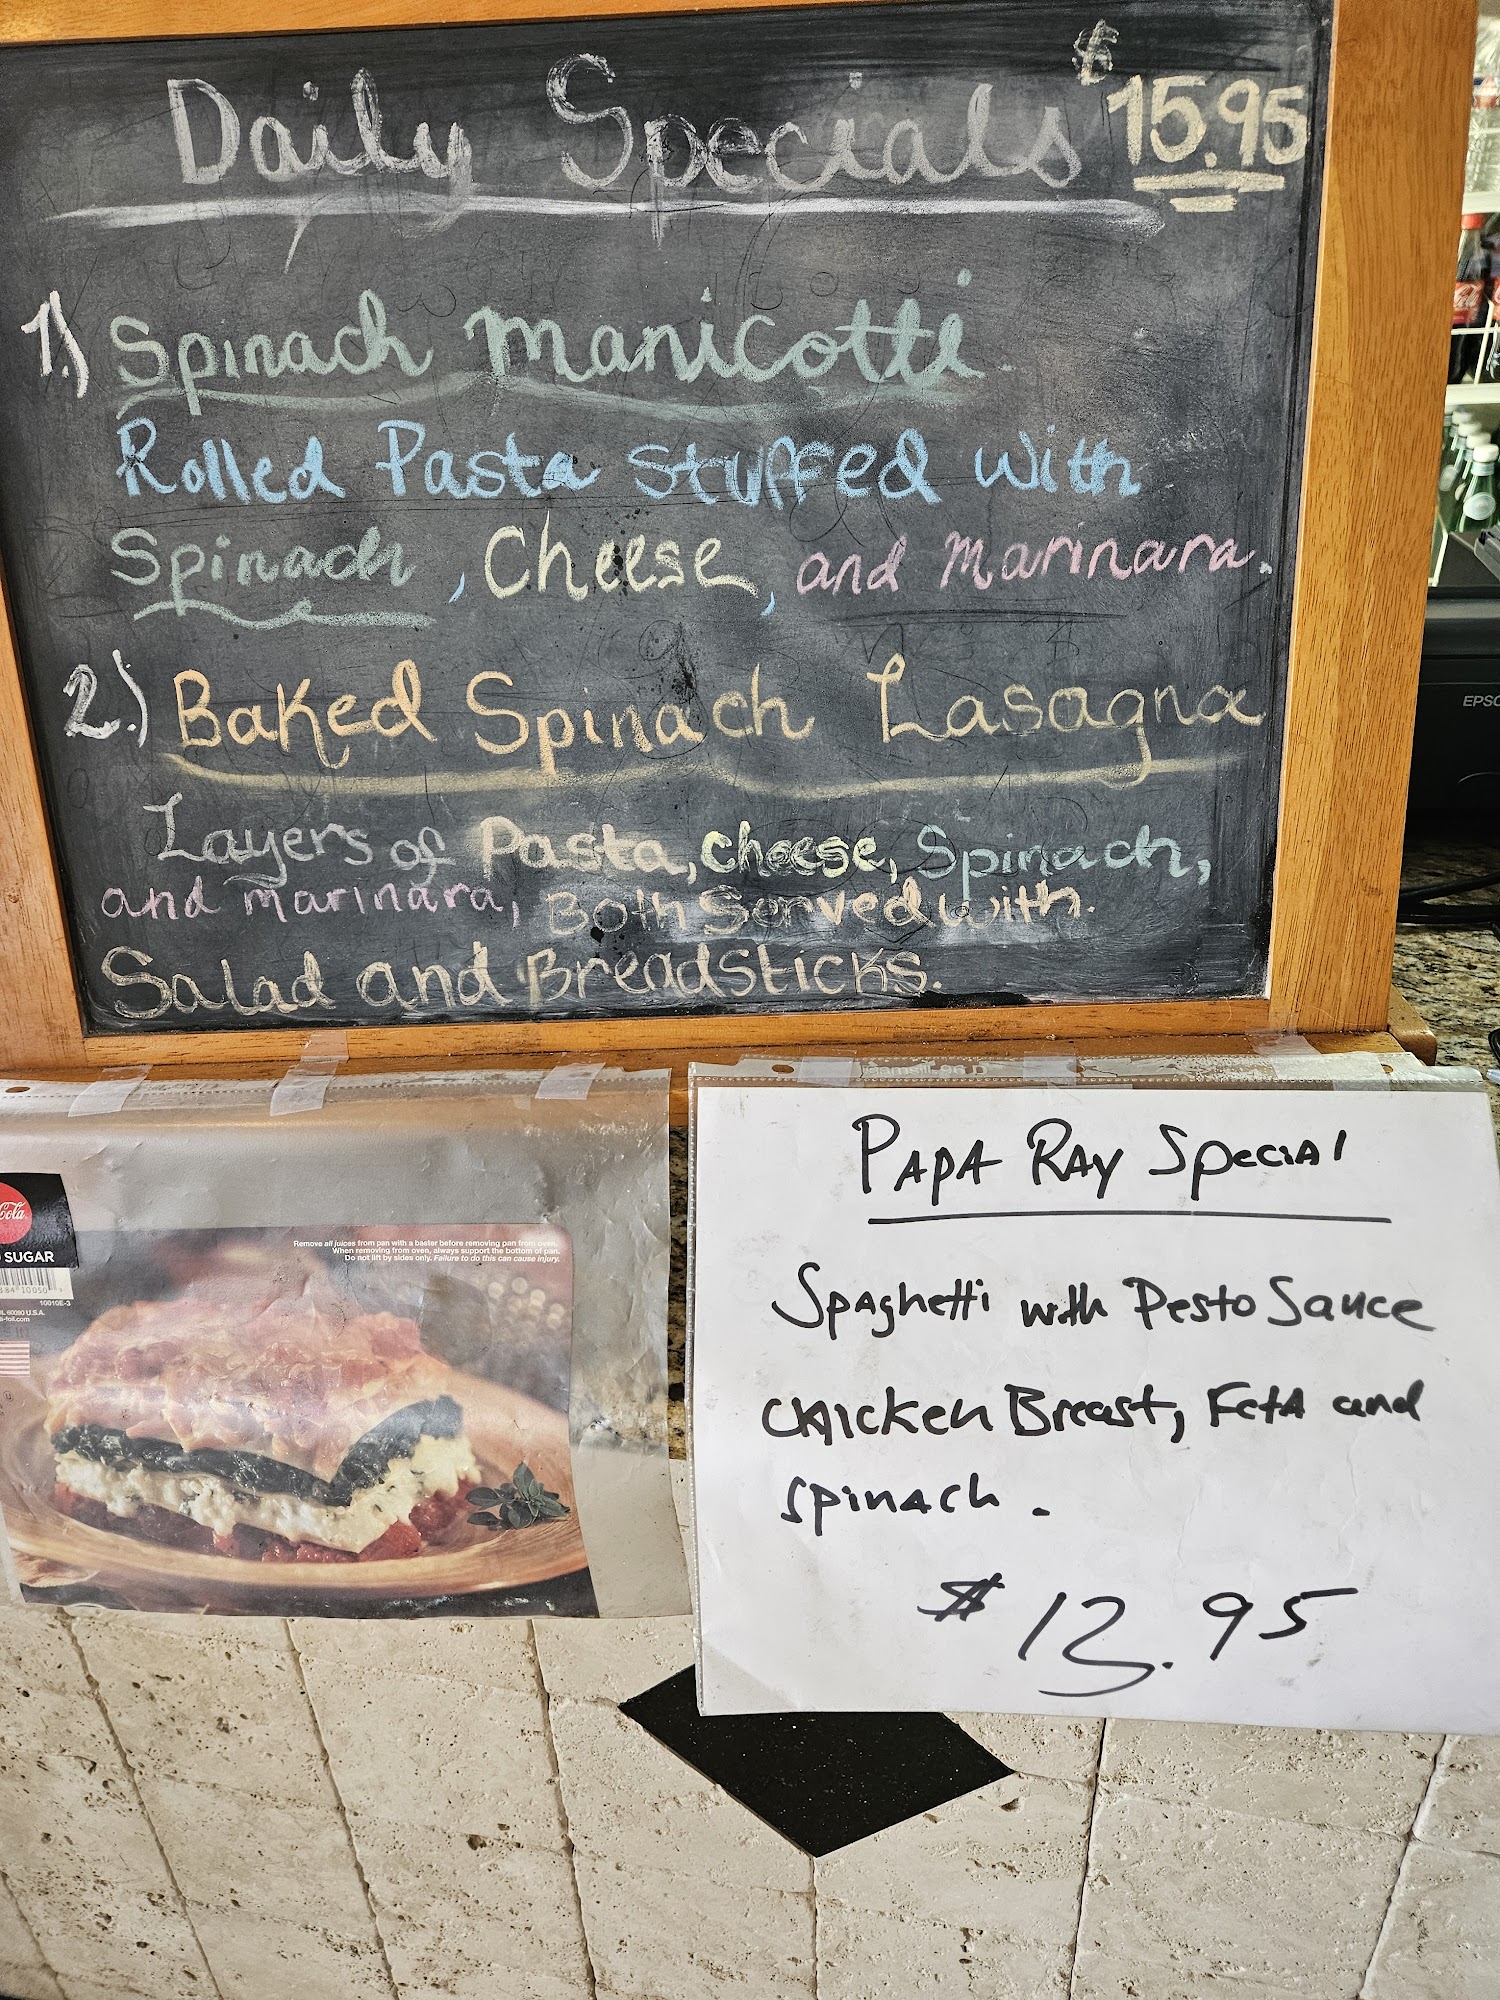 Daily Specials $15.95
1.) Spinach Manicotti
Rolled Pasta stuffed with
Spinach, Cheese, and Marinara.
2.) Baked Spinach Lasagna
Layers of Pasta, cheese, Spinach,
and marinara, Both Served with.
Salad and Breadsticks.
EPSO
Cola
SUGAR
10010E-3
60090 U.S.A.
Remove all juices from pan with a baster before removing pan from oven.
When removing from oven, always support the bottom of pan.
Do not lift by sides only. Failure to do this can cause injury.
PAPA RAY Special
Spaghetti with Pesto Sauce
Chicken Breast, Feta and
spinach.
$13.95